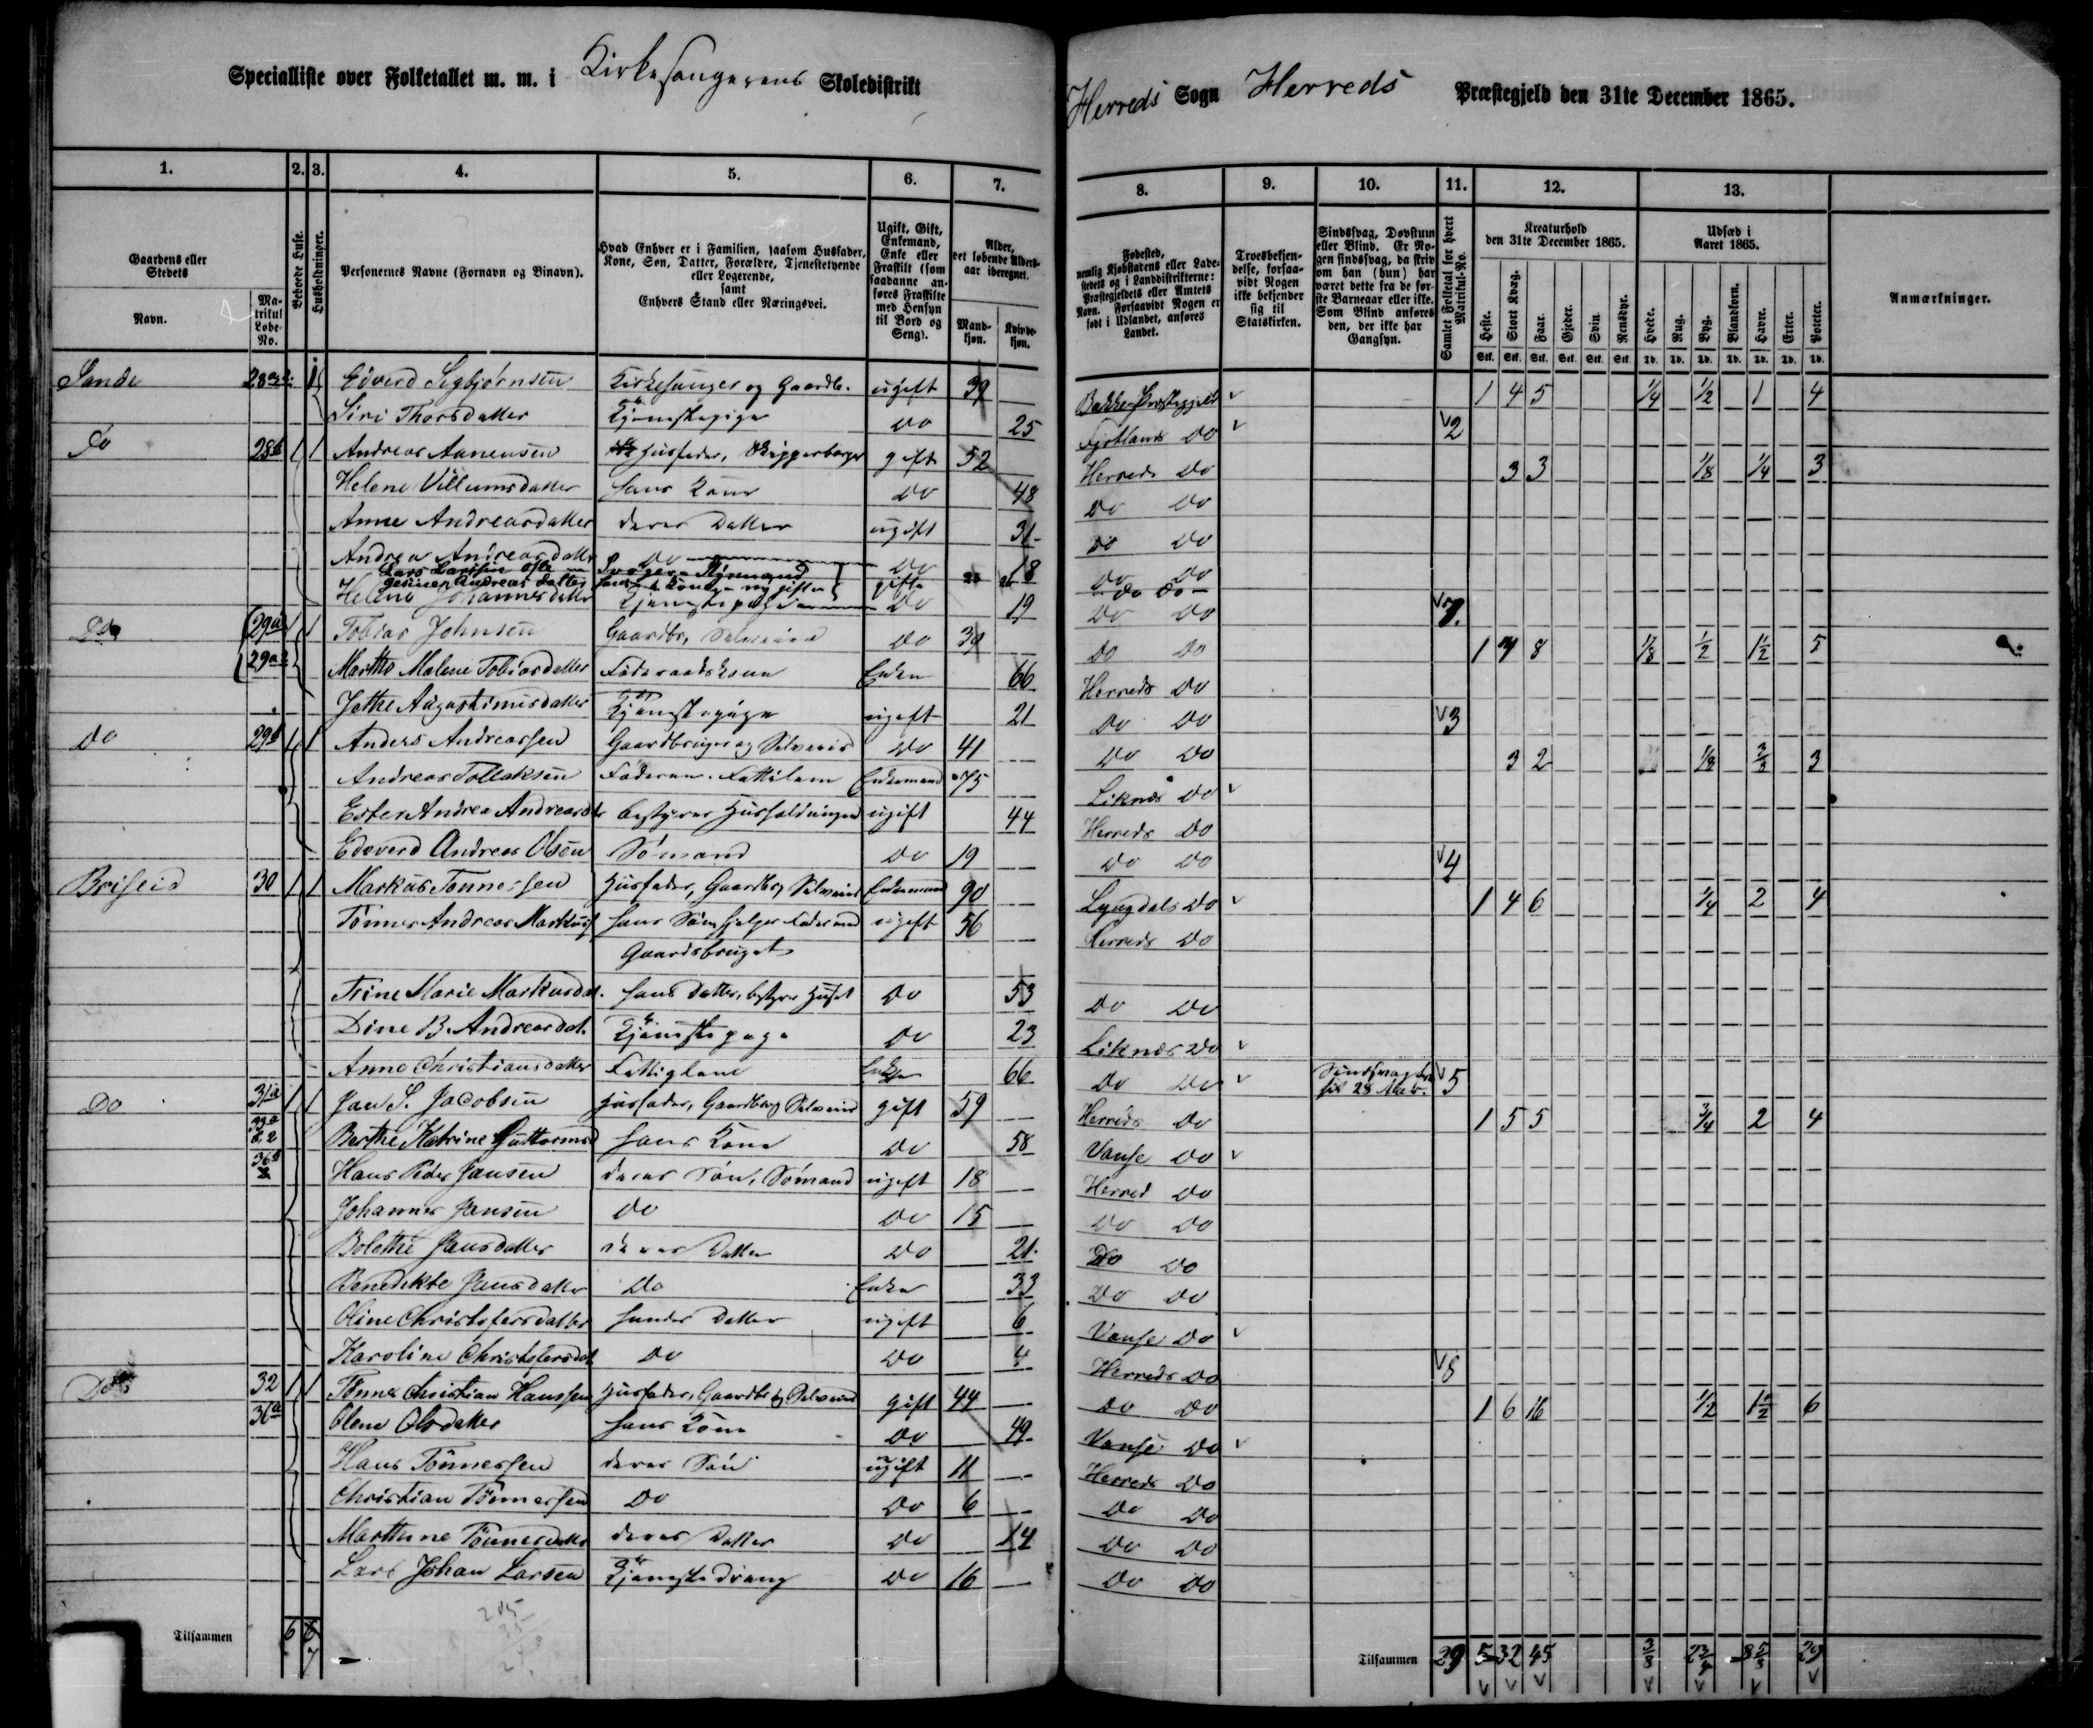 Specialliste over Folketallet m. m. i Kirkesangerens Skoledistrikt
Herreds Sogn Herreds Præstegjeld den 31te December 1865.
1. 2. 3. 4. 5. 6. 7. 8. 9. 10. 11. 12. 13.
Gaardens eller Stedets
Navn.
Matrikul Løbe-No.
Beboede Huse.
Husholdninger.
Personernes Navne (Fornavn og Binavn).
Hvad Enhver er i Familien, saasom Husfader, Kone, Søn, Datter, Forældre, Tjenestetyende eller Logerende,
samt
Enhvers Stand eller Næringsvei.
Ugift, Gift, Enkemand, Enke eller Fraskilt (som saadanne anføres Fraskilte med Hensyn til Bord og Seng).
Alder, det løbende Aldersaar iberegnet.
Mandkjøn.
Kvindekjøn.
Fødested, nemlig Kjøbstadens eller Ladestedets og i Landdistrikterne: Præstegjeldets eller Amtets Navn. Forsaavidt Nogen er født i Udlandet, anføres Landet.
Troesbekjendelse, forsaavidt Nogen ikke bekjender sig til Statskirken.
Sindssvag, Døvstum eller Blind. Er Nogen sindssvag, da skriv om han (hun) har været dette fra de første Barneaar eller ikke. Som Blind anføres den, der ikke har Gangsyn.
Samlet Folketal for hvert Matrikul-No.
Kreaturhold den 31te December 1865.
Heste. Stort Kvæg. Faar. Gjeder. Svin. Rensdyr.
Udsæd i Aaret 1865.
Hvede. Rug. Byg. Blandkorn. Havre. Erter. Poteter.
Anmærkninger.
Stk. Stk. Stk. Stk. Stk. Stk. Td. Td. Td. Td. Td. Td. Td.
Sande 1 Edverd Sigbjørnsen Kirkesanger og Gaardb. ugift 39 Bakke Præstegjeld 1 4 5 1/4 1/2 1 4
Siri Thorsdatter Tjenestepige do 25 Fjotlands do 2
do 28b 1 1 Andreas Aanensen Husfader, Skipperborger gift 52 Herreds do 3 3 1/8 1/4 3
Helene Villumsdatter hans Kone do 48 do do
Anne Andreasdatter deres Datter ugift 31 do do
Andrea Andreasdatter do do 18 do do
Lars Larssen
Andreas datter gift do do
Helene Johannesdatter Tjenestepige do 19 do do 7.
Do 29a 1 1 Tobias Johnsen Gaardbr, Selveier do 39 do do 1 7 8 1/8 1/2 1 1/2 5
29a2 Marthe Malene Tobiasdatter Føderaadskone Enke 66 Herreds do
Jethe Augustinusdatter Tjenestepige ugift 21 do do 3
do 29b 1 1 Anders Andreassen Gaardbruger og Selveier do 41 do do 3 2 1/8 3/8 3
Andreas Tollaksen Enkemand 75 Liknes do
Ester Andrea Andreasdtr bestyrer Husholdningen ugift 44 Herreds do
Edeverd Andreas Olsen Sømand do 19 do do 4
Briseid 30 1 1 Markus Tønnessen Husfader, Gaardb. Selveier Enkemand 90 Lyngdals do 1 4 6 1/4 2 4
Tønnes Andreas Markuss hans Søn, hjelper Faderen med ugift 56 Herreds do
Gaardsbruget
Trine Marie Markusdat. hans Datter, bestyrer Huset do 53 do do
Dine B. Andreasdat. Tjenestepige do 23 Liknes do
Anne Christiansdatter Fattiglem Enke 66 do do Sindssvag 5
Do 31a 1 1 Jan S. Jacobsen Husfader, Gaardb. og Selveier gift 59 Herreds do 1 5 5 3/4 2 4
Berthe Katrine Guttormsd hans Kone do 58 Vanse do
36b Hans Peder Jansen deres Søn, Sømand ugift 18 Herred do
Johannes Jansen do do 15 do do
Bolethe Jansdatter deres Datter do 21 do do
Benedikte Jansdatter do Enke 33 do do
Oline Christofersdatter hendes Datter ugift 6 Vanse do
Karoline Christofersdat do do 4 Herreds do 8
Do 32 1 1 Tønnes Christian Hanssen Husfader, Gaardbr. og Selveier gift 44 do do 1 6 16 1/2 1 1/2 6
36a Olene Olsdatter hans Kone do 49 Vanse do
Hans Tønnessen deres Søn ugift 11 Herreds do
Christian Tønnessen do do 6 do do
Marthine Tønnesdatter deres Datter do 14 do do
Lars Johan Larsen Tjenestedreng do 16 do do
Tilsammen 6 6
7
Tilsammen 29 5 32 45 3/8 2 3/4 8 5/8 29